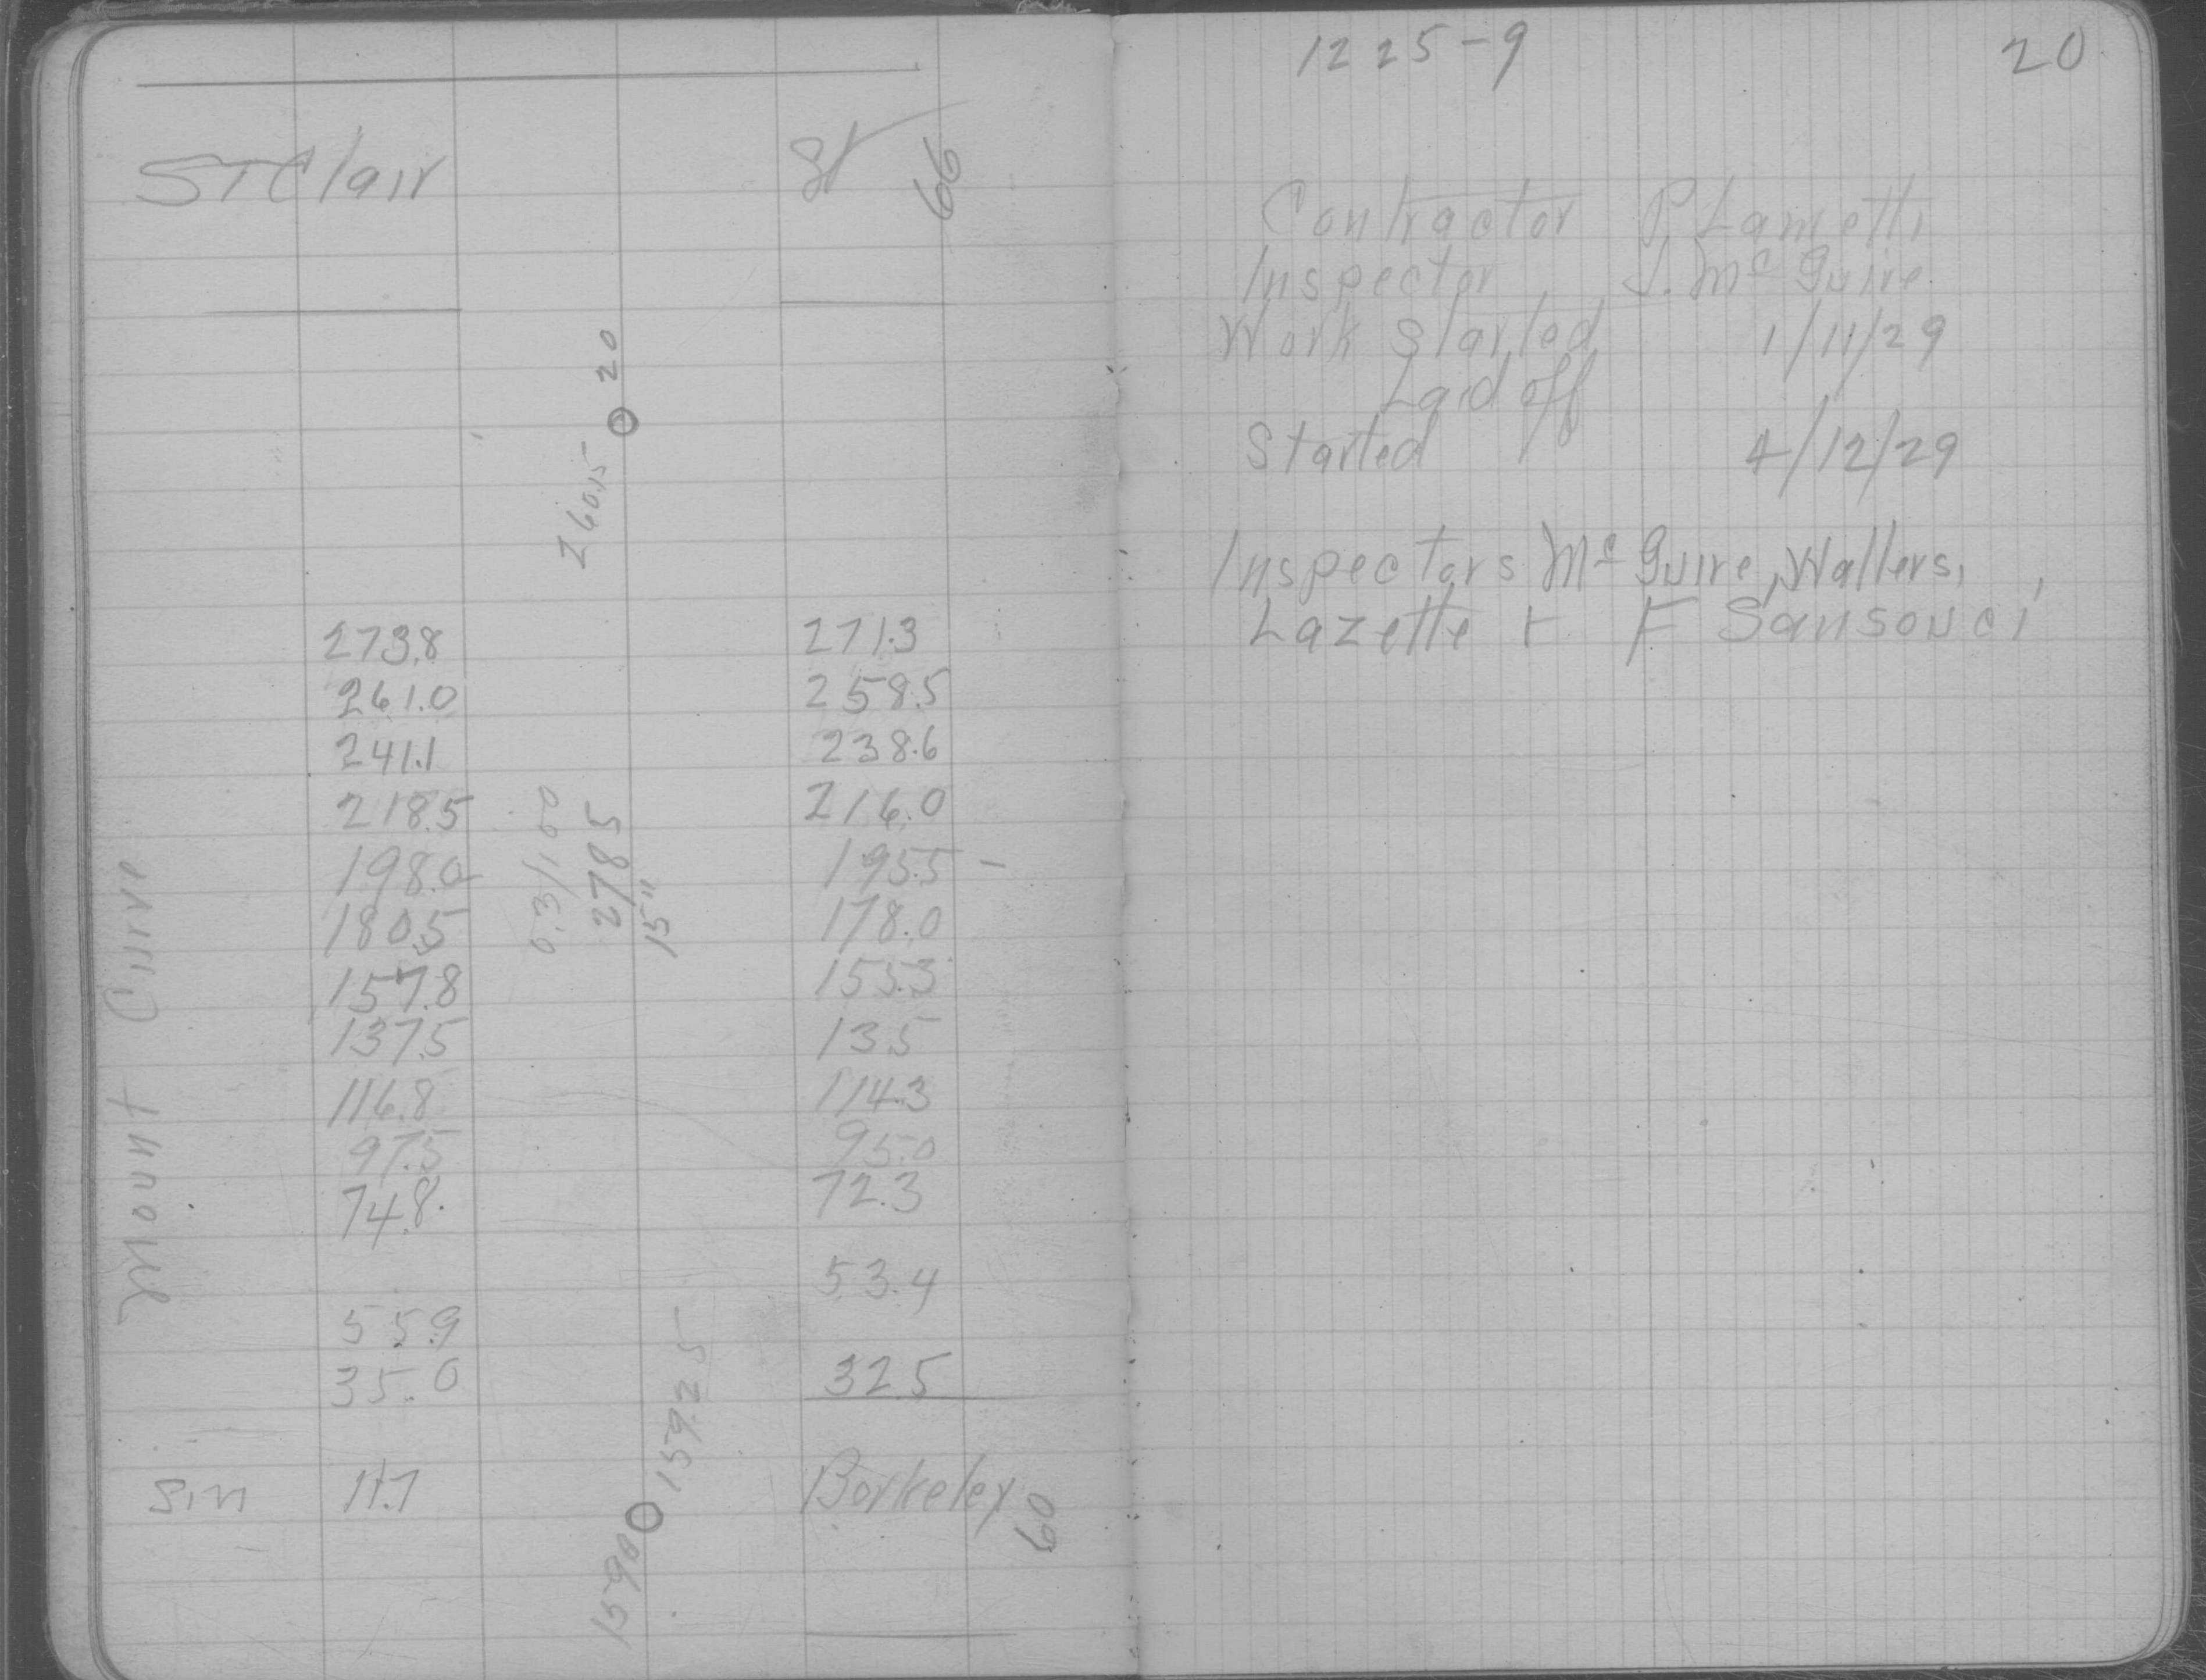 St Clair St 66
20
260.15
273.8 271.3
261.0 258.5
241.1 238.6
218.5 216.0
198.0 195.5 -
180.5 178.0
157.8 155.3
137.5 135
116.8 114.3
97.5 95.0
74.8 72.3
53.4
55.9
35.0 32.5
11.7 Berkeley 60
Mount Curve
0.3/100
278.5
15"
159.25
159.00
1225-9 20
Contractor P.
Inspector J. McGuire
Work Started 1/11/29
Laid off
Started 4/12/29
Inspectors McGuire, Walters,
Lazette + F Sansouci